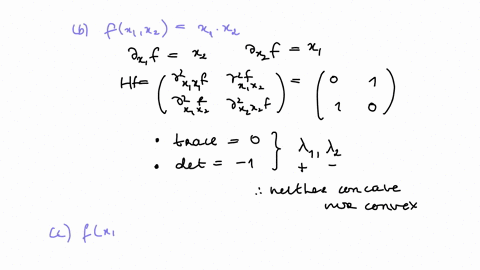 (b) f(x₁,x₂) = x₁·x₂
∂x₁f = x₂ ∂x₂f = x₁
Hf = ( ∂²x₁x₁f ∂²f x₁x₂ ) = ( 0 1 )
( ∂²f x₁x₂ ∂²x₂x₂f ) ( 1 0 )
• trace = 0 } λ₁, λ₂
• det = -1 } + -
∴ neither concave
nor convex
(c) f(x₁